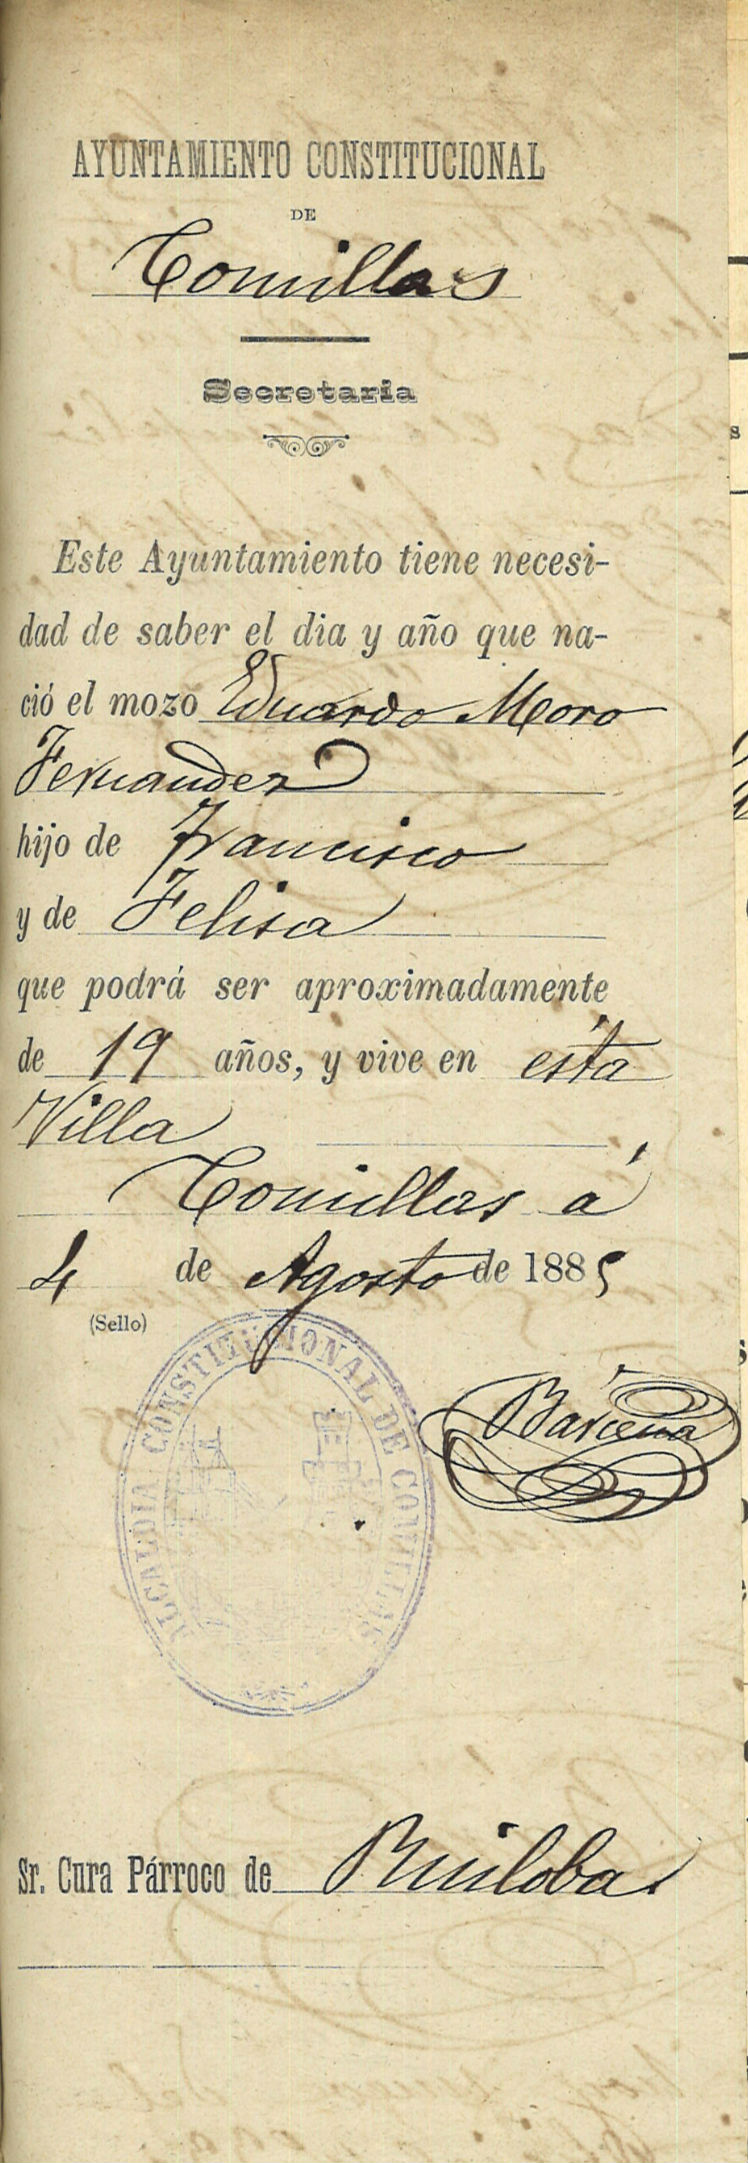 AYUNTAMIENTO CONSTITUCIONAL
DE
Comillas
Secretaría
Este Ayuntamiento tiene necesi-
dad de saber el dia y año que na-
ció el mozo Eduardo Moro
Fernandez
hijo de Francisco
y de Felisa
que podrá ser aproximadamente
de 19 años, y vive en esta
Villa
Comillas á
4 de Agosto de 1885
(Sello)
ALCALDIA CONSTITUCIONAL DE COMILLAS
Bárcena
Sr. Cura Párroco de Ruiloba